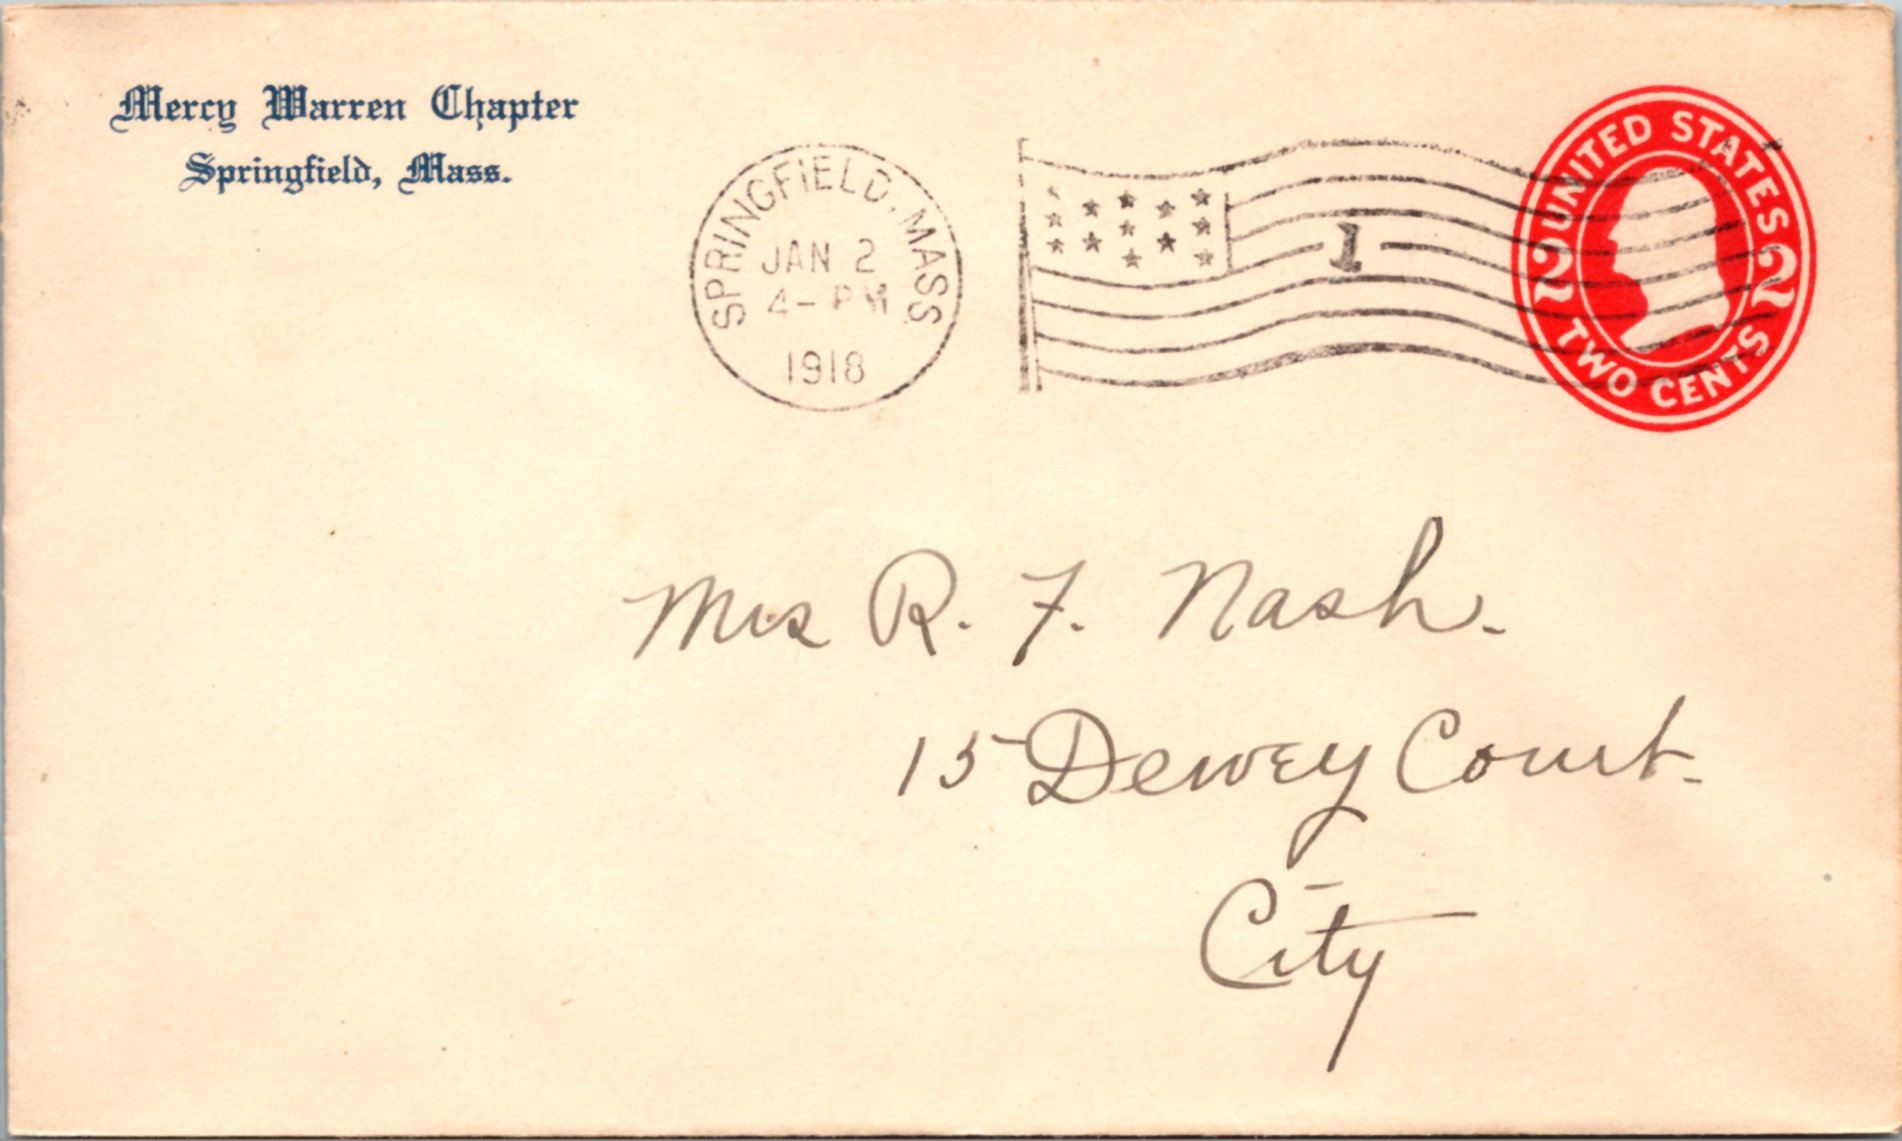 Mercy Warren Chapter
Springfield, Mass.
SPRINGFIELD, MASS
JAN 2
4 - PM
1918
1
UNITED STATES
2 2
TWO CENTS
Mrs R. F. Nash.
15 Dewey Court.
City